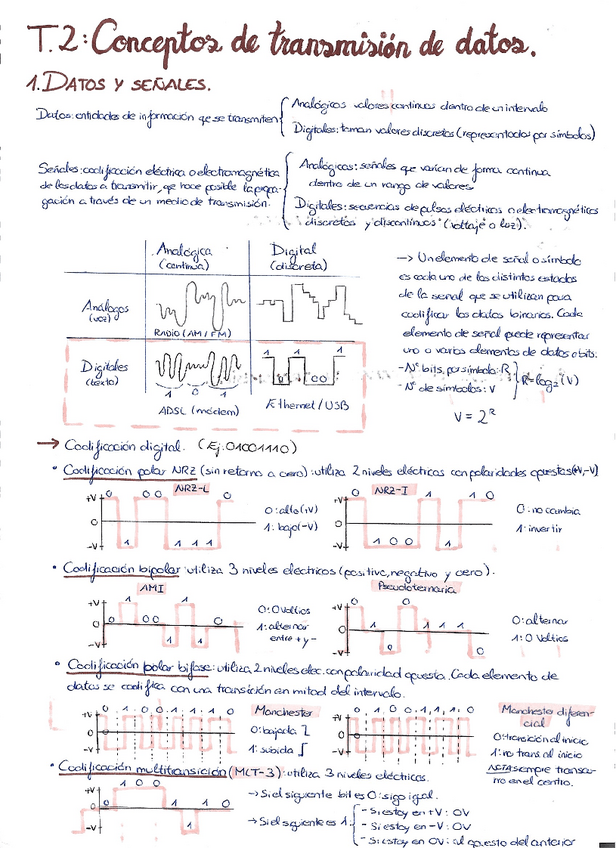 T.2: Conceptos de transmisión de datos.
1. DATOS Y SEÑALES.
Datos: entidades de información que se transmiten
Analógicos valores continuos dentro de un intervalo
Digitales: toman valores discretos (representados por símbolos)
Señales: codificación eléctrica o electromagnética
de los datos a transmitir, que hace posible la propa-
gación a través de un medio de transmisión.
Analógicas: señales que varían de forma continua
dentro de un rango de valores
Digitales: secuencias de pulsos eléctricos o electromagnéticos
discretos y discontinuos (voltaje o luz).
Analógica (continua)
Digital (discreta)
Análogos (voz)
RADIO (AM / FM)
Digitales (texto)
1 0 1
ADSL (módem)
1 1 1
00
Ethernet / USB
→ Un elemento de señal o símbolo
es cada uno de los distintos estados
de la señal que se utilizan para
codificar los datos binarios. Cada
elemento de señal puede representar
uno o varios elementos de datos o bits.
- Nº bits por símbolo: R
- Nº de símbolos: V
R = log₂ (V)
V = 2ᴿ
→ Codificación digital. (Ej. 01001110)
• Codificación polar NRZ (sin retorno a cero): utiliza 2 niveles eléctricos con polaridades opuestas (+V, -V)
NRZ-L
+V 0 00 0
0
-V 1 1 1 1
0: alto (+V)
1: bajo (-V)
NRZ-I
+V 0 1 1 0
0
-V 1 0 0 1
0: no cambia
1: invertir
• Codificación bipolar: utiliza 3 niveles eléctricos (positivo, negativo y cero).
AMI
+V 1 1
0 0 00 0
-V 1 1
0: 0 Voltios
1: alternar
entre + y -
Pseudoternaria
+V 0 0
0 1 1 1 1
-V 0 0
0: alternar
1: 0 Voltios
• Codificación polar bifase: utiliza 2 niveles elec. con polaridad opuesta. Cada elemento de
datos se codifica con una transición en mitad del intervalo.
+V 0 1 0 0 1 1 1 0
0
-V
Manchester
0: bajada
1: subida
+V 0 1 0 0 1 1 1 0
0
-V
Manchester diferen-
cial
0: transición al inicio
1: no trans. al inicio
NOTA siempre transac-
no en el centro.
• Codificación multitransición (MLT-3): utiliza 3 niveles eléctricos.
+V 1 0 0
0 0 1 0
-V 1
→ Si el siguiente bit es 0: sigo igual.
→ Si el siguiente es 1:
- Si estoy en +V: 0V
- Si estoy en -V: 0V
- Si estoy en 0V: al opuesto del anterior